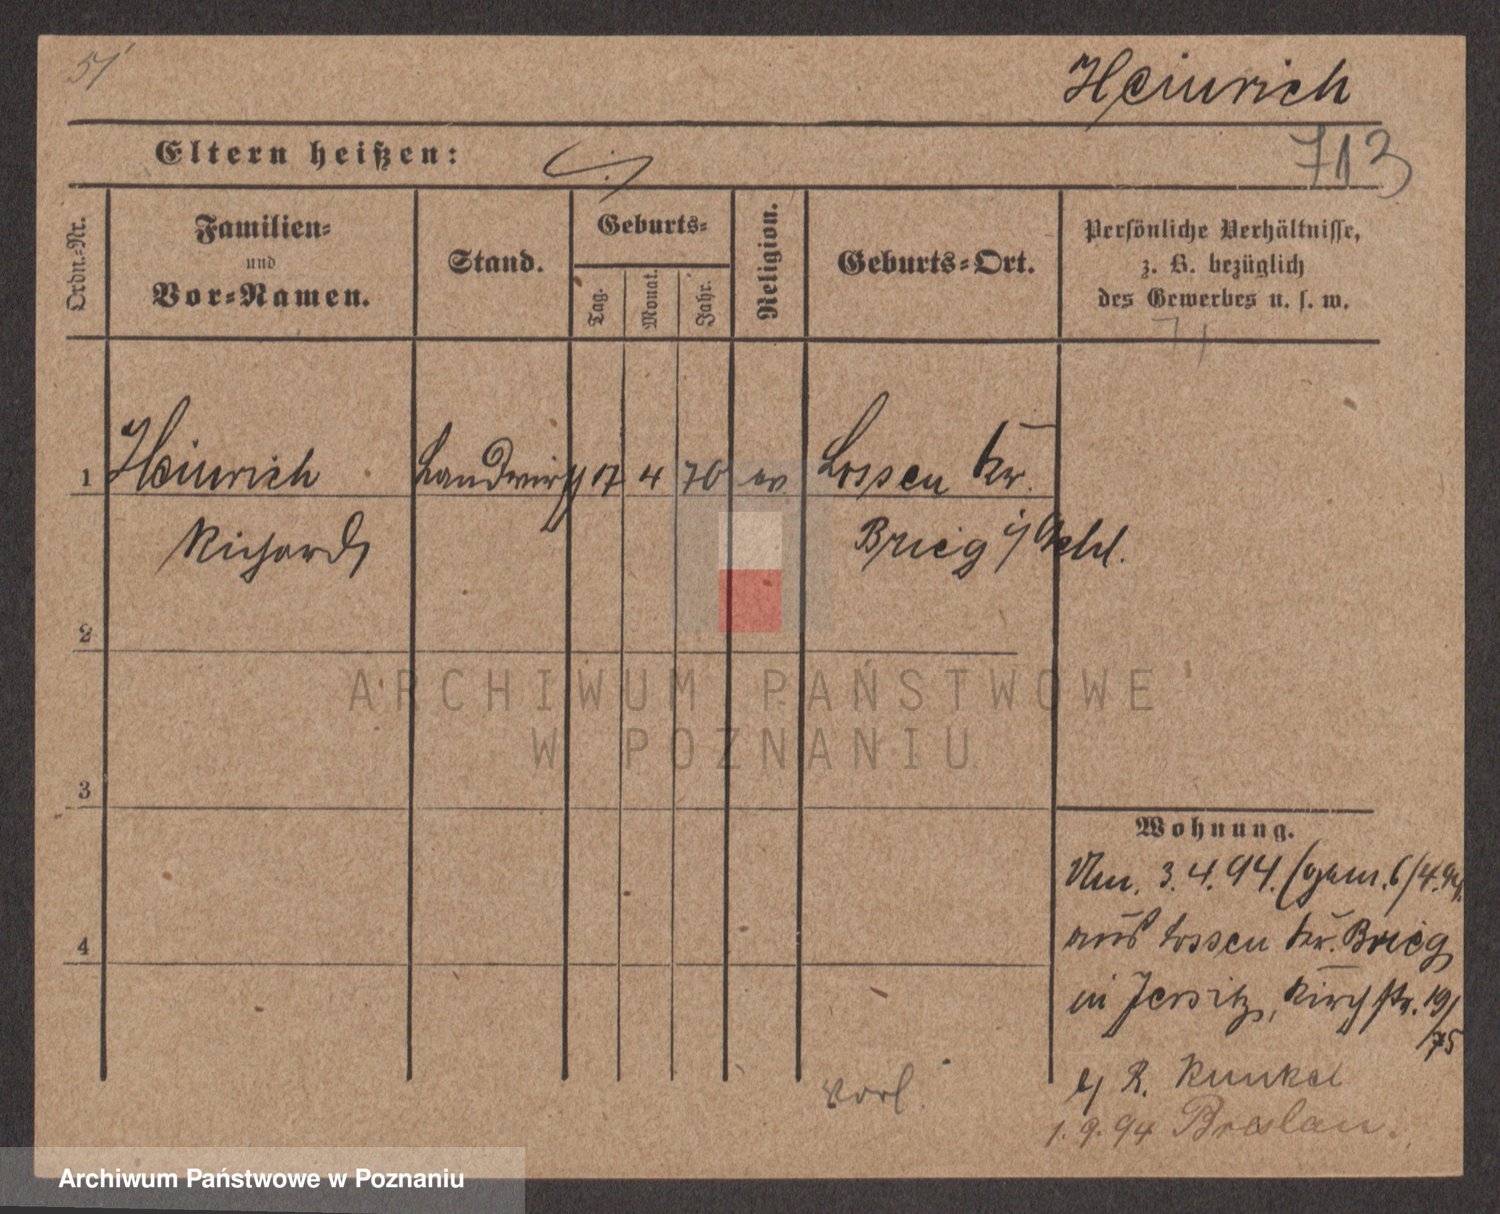 51
Heinrich
Eltern heißen:
713
Ordn.-Nr.
Familien-
und
Vor-Namen.
Stand.
Geburts-
Tag.
Monat.
Jahr.
Religion.
Geburts-Ort.
Persönliche Verhältnisse,
z. B. bezüglich
des Gewerbes u. s. w.
1 Heinrich Landwirth 17 4 70 ev. Lossen Kr.
Richard Brieg i/Schl.
2
3
4
ARCHIWUM PAŃSTWOWE
W POZNANIU
Wohnung.
3.4.94. (gem. 6/4.94.
aus Lossen Kr. Brieg
in Jersitz, Kirchstr. 19/
75
b/ R. Kunkel
vorl.
1.9.94 Breslau.
Archiwum Państwowe w Poznaniu